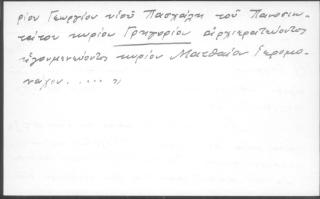 ρίου Γεωργίου υἱοῦ Πασχάλη τοῦ Πανοσιω-
τάτου κυρίου Γρηγορίου ἀρχιερατεύοντος
ἡγουμενεύοντος κυρίου Ματθαίου ἱερομο-
νάχου. .... "